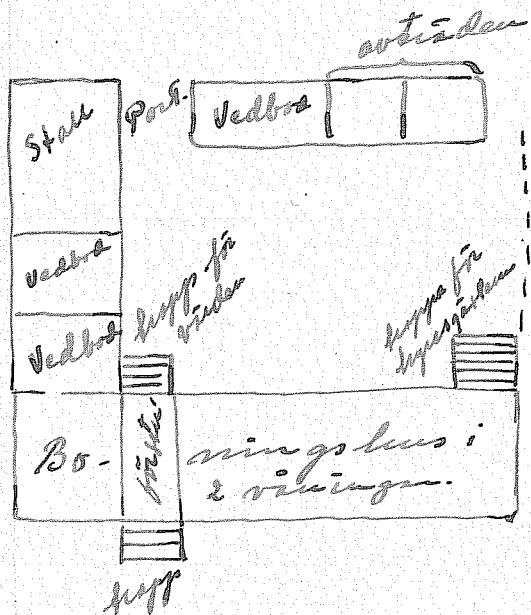 avträden
Stall
Port.
Vedbod
Vedbod
Vedbod
trapp för
värden
trappa för
hyresgästerna
Bo-
förstu
ningshus i
2 våningar.
trapp